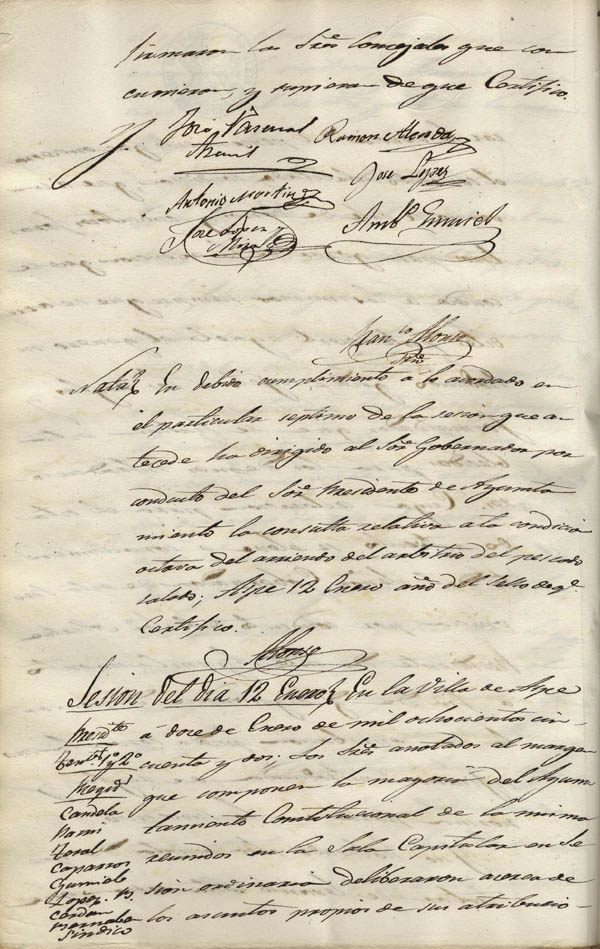 firmaron los Sres Concejales que con
currieron, y supieron de que Certifico.
José Pascual
Ramon Alenda
Antonio Martinez
Jose Lopez
Jose Lopez y
Mira
Ambo Gumiel
Franco Alonso
Srio
Nota En debido cumplimiento á lo acordado en
el particular septimo de la sesion que an
tecede ha dirigido al Sor Gobernador por
conducto del Sor Presidente de Ayunta
miento la consulta relativa a la condicion
octava del arriendo del arbitrio del pescado
salado; Aspe 12 Enero año del sello de qe
Certifico.
Alonso
Sesion del dia 12 Enero En la Villa de Aspe
á doce de Enero de mil ochocientos cin-
cuenta y dos; los Sres anotados al margen
que componen la mayoria del Ayun
tamiento Constitucional de la misma
reunidos en la Sala Capitular en Se
sion ordinaria deliberaron acerca de
los asuntos propios de sus atribucio-
Presidte
Tente 1º y 2º
Regid
Candela
Toral
Caparros
Gumiel
Lopez
Cerdan
Bernabe
Sindico